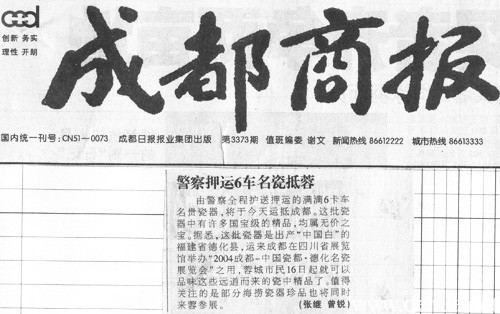 创新 务实
理性 开朗
成都商报
国内统一刊号:CN51-0073 成都日报报业集团出版 第3373期 值班编委 谢文 新闻热线 86612222 城市热线 86613333
警察押运6车名瓷抵蓉
由警察全程护送押运的满满6卡车
名贵瓷器,将于今天运抵成都。这批瓷
器中有许多国宝级的精品,均属无价之
宝。据悉,这批瓷器是出产“中国白”的
福建省德化县,运来成都在四川省展览
馆举办“2004成都-中国瓷都·德化名瓷
展览会”之用,蓉城市民16日起就可以
品味这些远道而来的瓷中精品了。值得
关注的是部分海捞瓷器珍品也将同时
来蓉参展。 (张继 曾锐)